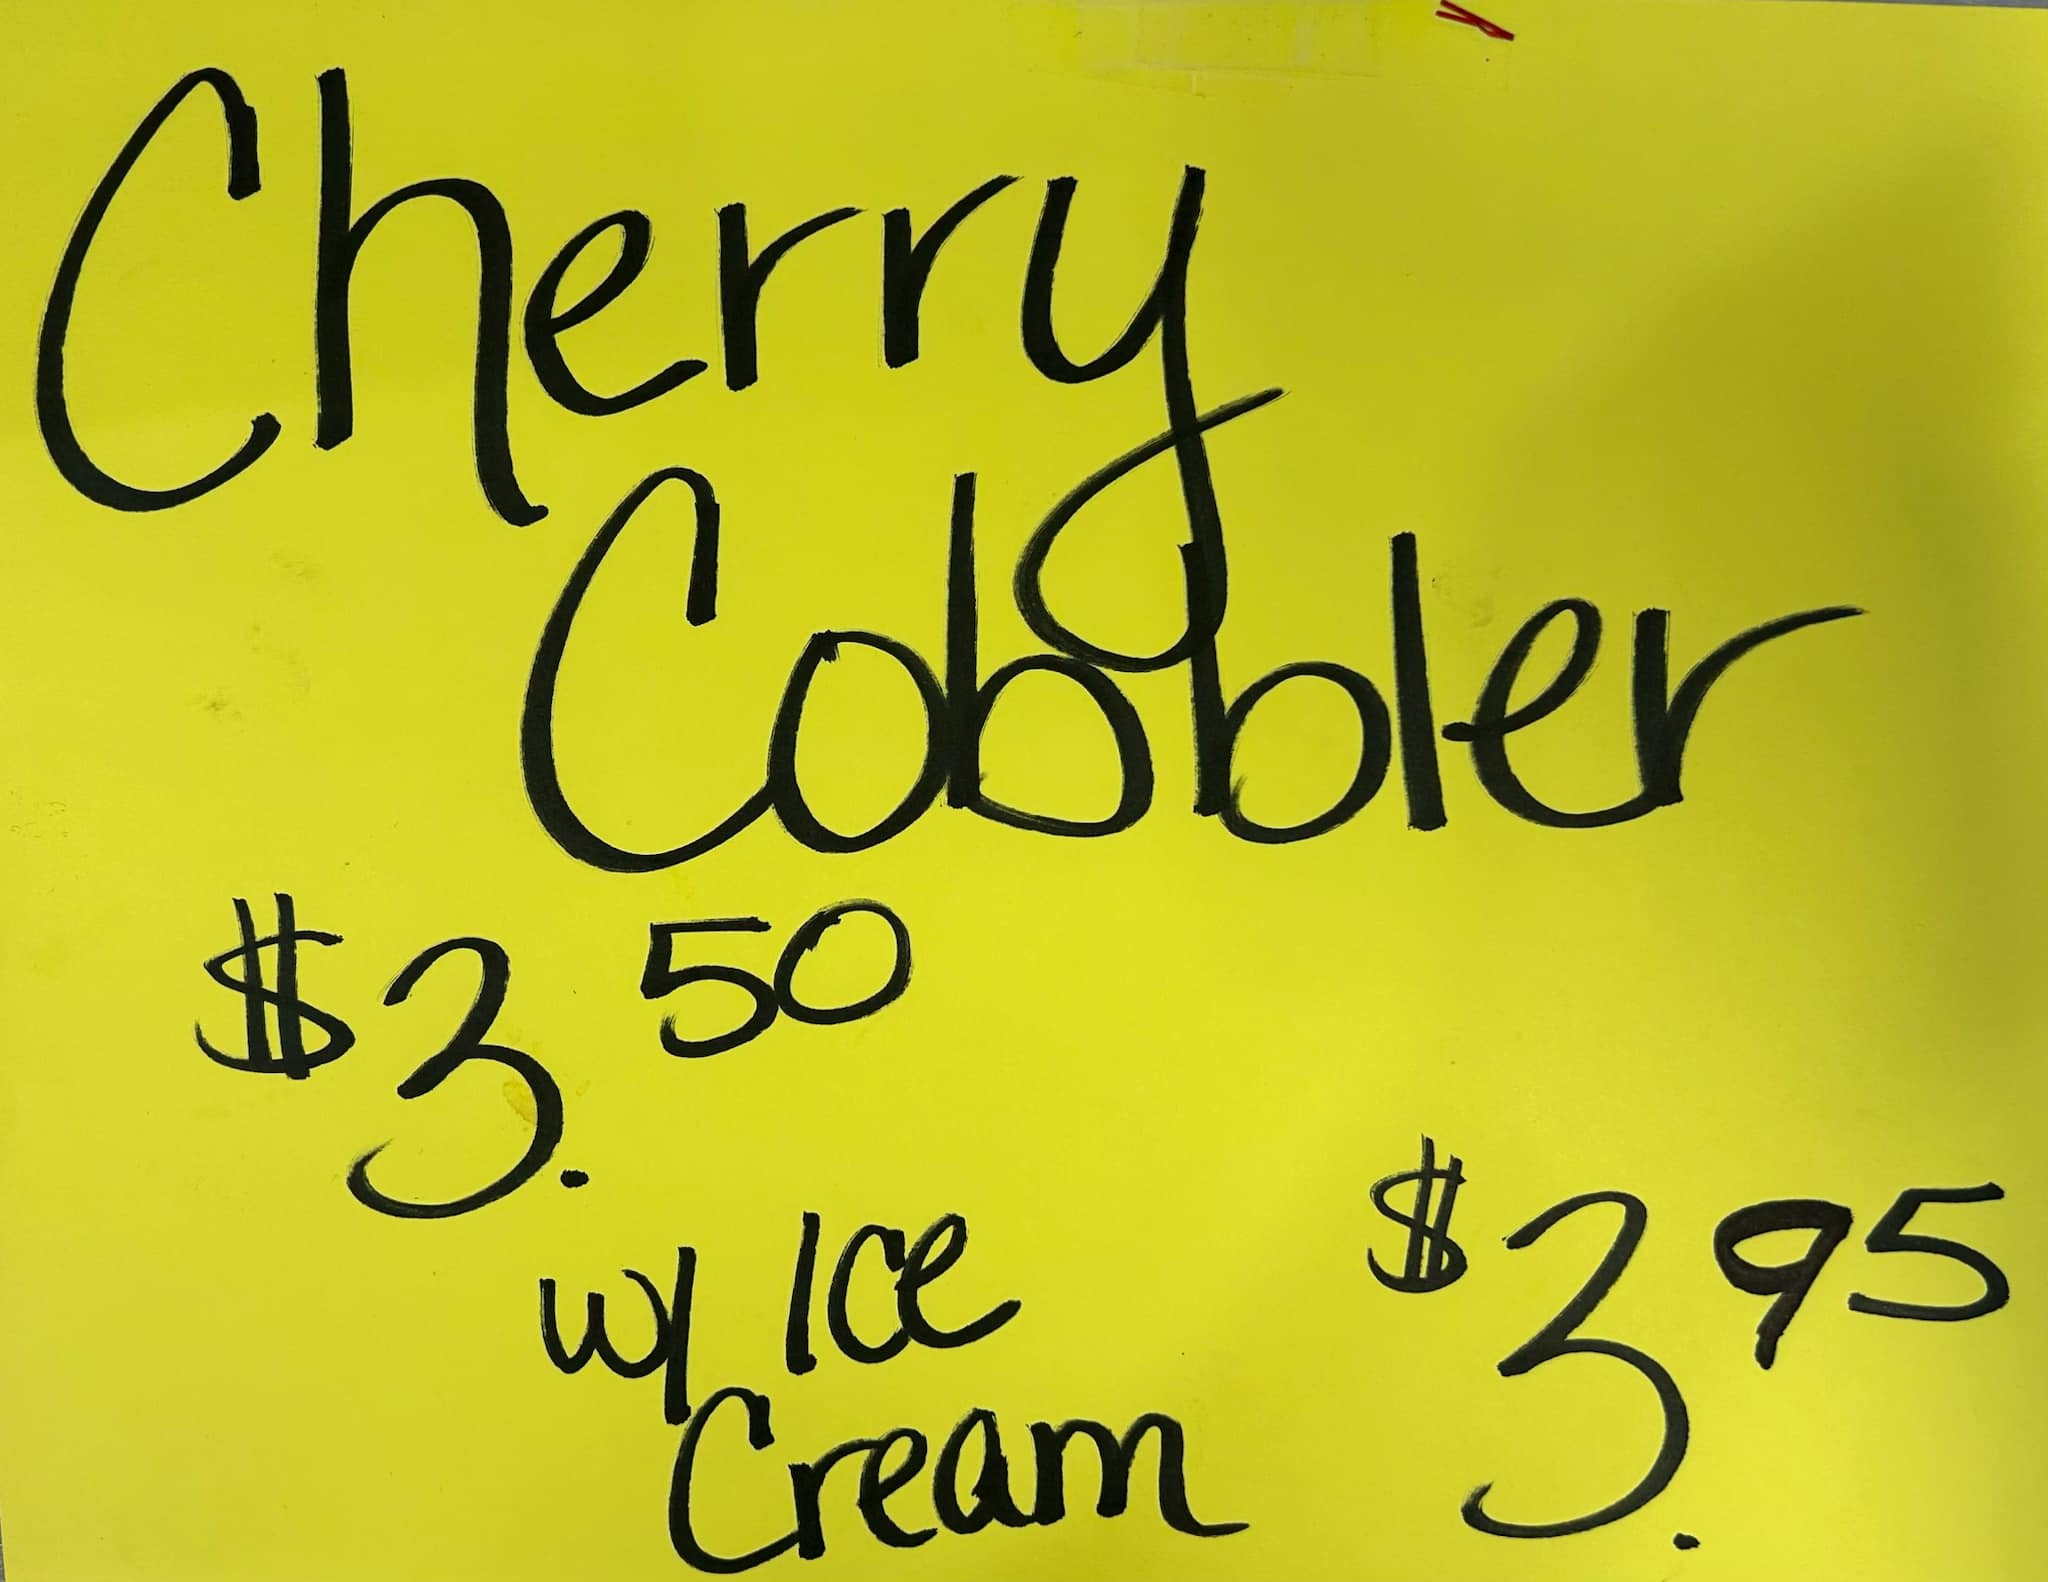 Cherry
Cobbler
$3.50
w/ Ice
Cream $3.95